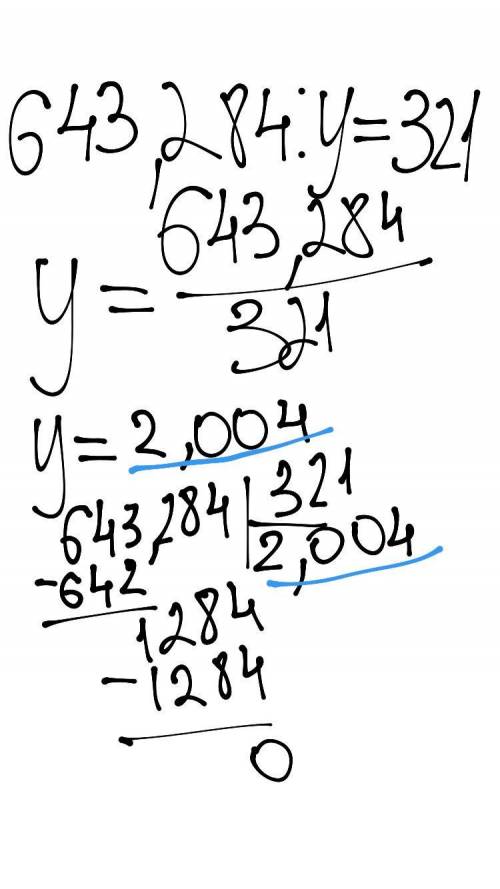 643,284:y=321
y = 643,284 / 321
y = 2,004
643,284 | 321
-642 | 2,004
1284
-1284
0